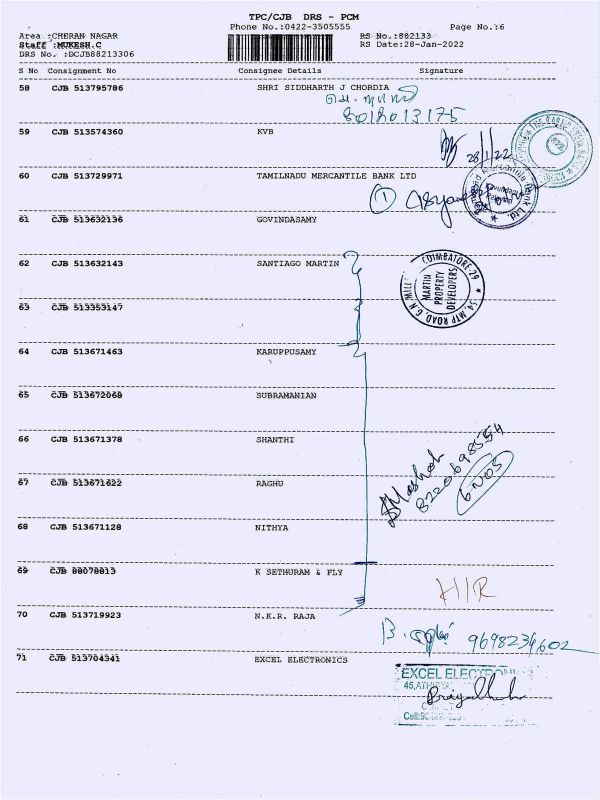 TPC/CJB DRS - PCM
Phone No.:0422-3505555 Page No.:6
Area :CHERAN NAGAR RS No.:882133
Staff :MUKESH.C RS Date:28-Jan-2022
DRS No. :DCJB88213306
S No Consignment No Consignee Details Signature
58 CJB 513795786 SHRI SIDDHARTH J CHORDIA
8018013175
59 CJB 513574360 KVB
28/1/22
60 CJB 513729971 TAMILNADU MERCANTILE BANK LTD
1
61 CJB 513632136 GOVINDASAMY
62 CJB 513632143 SANTIAGO MARTIN
COIMBATORE-29
MARTIN
PROPERTY
DEVELOPERS
54, MTP ROAD, G.N.
63 CJB 513353147
64 CJB 513671463 KARUPPUSAMY
65 CJB 513672068 SUBRAMANIAN
66 CJB 513671378 SHANTHI
8220698554
6 NOS
67 CJB 513671622 RAGHU
68 CJB 513671128 NITHYA
69 CJB 88078813 K SETHURAM & FLY
H/R
70 CJB 513719923 N.K.R. RAJA
9698234602
71 CJB 513704341 EXCEL ELECTRONICS
EXCEL ELECTRONICS
45,